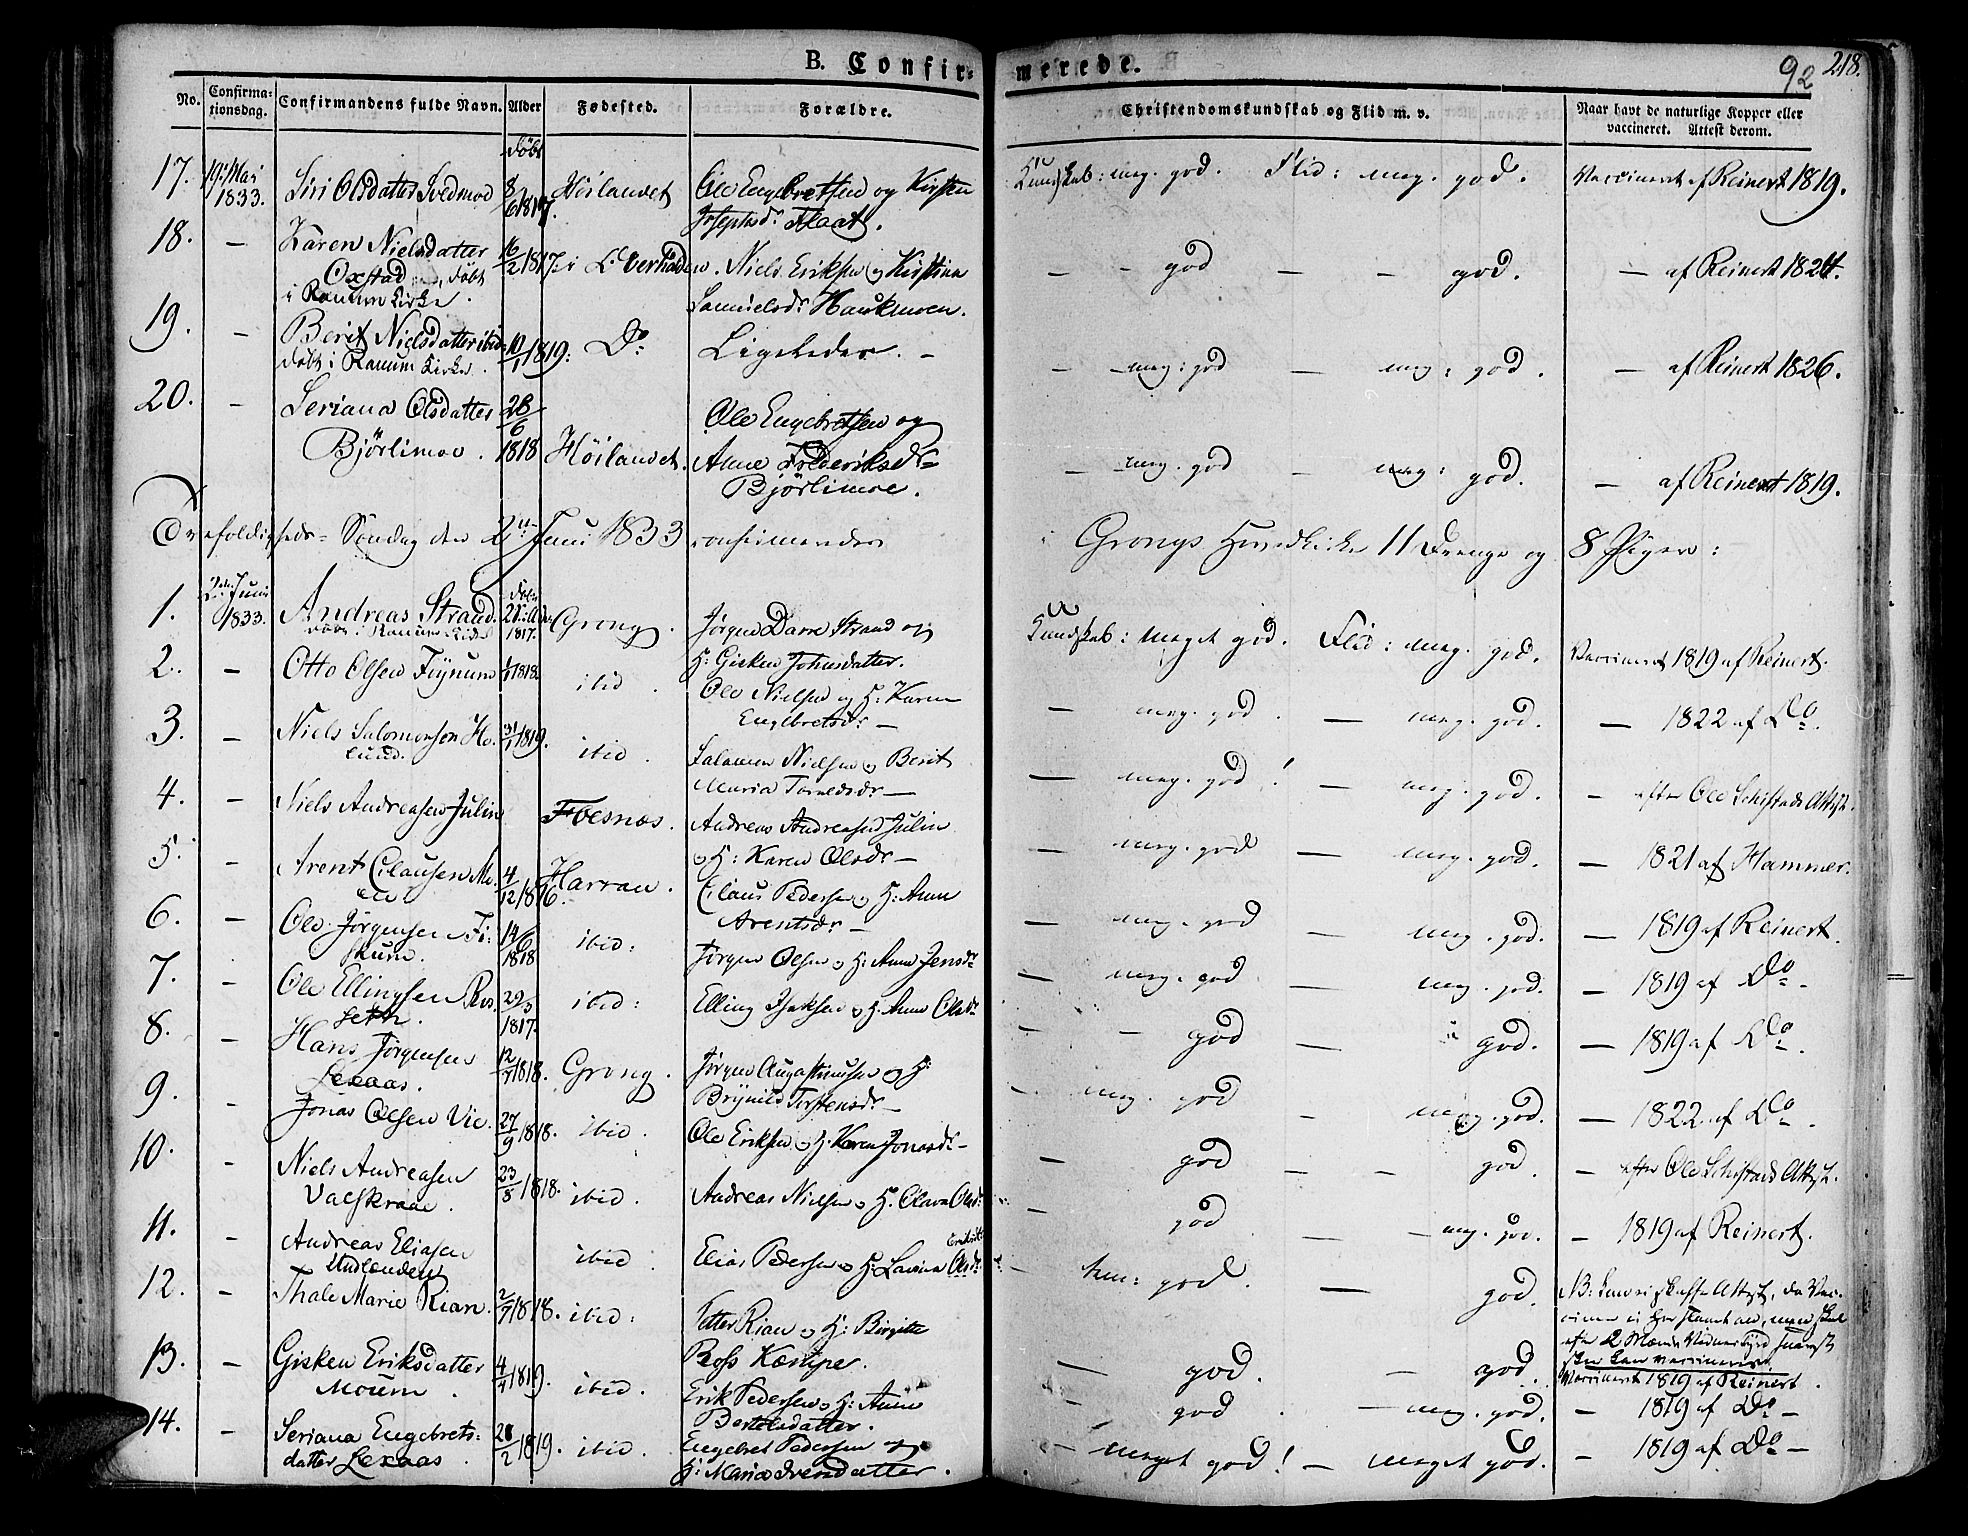 B. Confirmerede.
92 218.
No. Confirmationsdag. Confirmandens fulde Navn. Alder Fødested. Forældre. Christendomskundskab og Flid m. v. Naar havt de naturlige Kopper eller vaccineret. Attest derom.
døbt
17. 19. Mai 1833. Siri Olsdatter Svedmoe 8/6 1817. Höilandet Ole Engebretsen og Kirsten Josephsdr Flaat. Kundskab: meg. god. Flid: meg. god. Vaccineret af Reinert 1819.
18. — Karen Nielsdatter Oxstad, døbt i Ranum Kirke. 16/2 1817 i Overhalden. Niels Eriksen og Kirstina Samuelsdr Hauknoen. — - god — - god. — af Reinert 1824.
19. — Berit Nielsdatter ibid. døbt i Ranum Kirke. 10/1 1819: Do Ligeledes. — — meg: god — meg: god. — af Reinert 1826.
20. - Seriana Olsdatter Bjørlimoe. 28/6 1818 Höilandet. Ole Engebretsen og Anne Frederiksdr Bjørlimoe. — meg. god — meg: god. — af Reinert 1819.
Trefoldigheds-Søndag den 2den Juni 1833 confirmerede i Grongs Hovedkirke 11 Drenge og 8 Piger:
1. 2den Juni 1833. Andreas Strand. døbt i Ranum Kirke 1817. Grong. Jørgen Darre Strand og H: Gisken Johnsdatter. Kundskab: meget god. Flid: meg. god. Vaccineret 1819 af Reinert.
2. — Otto Olsen Fiynum 1/1 1818. ibid. Ole Nielsen og H: Karen Engebretsdr — — meg. god. — meg. god. — 1822 af Do.
3. — Niels Salomonsen Holund. 31/1 1819. ibid. Salamon Nielsen og Berit Maria Tomasdr — — meg. god! — meg. god. — efter Ole Schistads Attest.
4. — Niels Andreasen Julin Foesnæs. Andreas Andreasen Julin og H: Karen Olsdr — — meg. god — meg. god. — 1821 af Hammer.
5. — Arent Clausen Moen 4/12 1816. Harran. Claus Pedersen og H: Anne Arentsdr — — meg. god — meg. god. — 1819 af Reinert.
6. — Ole Jørgensen Fiskum. 14/6 1818 ibid: Jørgen Olsen og H: Anne Jensdr — meg. god — meg. god. — 1819 af Do.
7. - Ole Ellingsen Rosseth. 29/3 1817. ibid: Elling Isaksen og H: Anne Olsdr — - god — god. — 1819 af Do.
8. — Hans Jørgensen Lexaas. 12/7 1818. Grong. Jørgen Augustinusen og H: Brynild Torstensdr — — meg. god — meg. god. — 1822 af Do.
9. - Jonas Olsen Vie. 27/9 1818. ibid. Ole Eriksen og H. Karen Jonasdr — — god — — god. — efter Ole Schistads Attest.
10. - Niels Andreasen Valskraae. 23/3 1818. ibid. Andreas Nielsen og H: Olava Olsdr. — god — meg. god. — 1819 af Reinert.
11. - Andreas Eliasen ibid. Elias Pedersen og H: Lavina Olsdr — tem: god. — god. NB: Kan ei skaffe Attest, da Vaccinen ei har slaaet an, men skal efter 2 Mænds Vidnesbyrd
12. — Thale Marie Rian. 2/7 1818. ibid: Petter Rian og H: Birgitte Ross Kæmpe. — god. — god. Vaccineret 1819 af Reinert.
13. — Gisken Eriksdatter Moum. 4/4 1819. ibid. Erik Pedersen og H: Anne Bertelsdatter. — god — meg. god. — 1819 af Do —
14. — Seriana Engebretsdatter Lexaas. 28/2 1819. ibid. Engebret Pedersen og H: Maria Ivensdatter. — meget god! — meget god. — 1819 af Do —